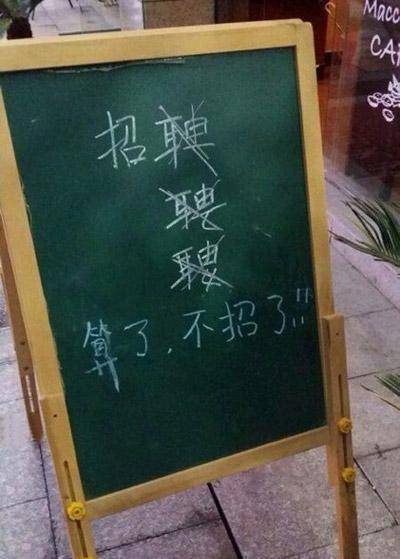 招聘
聘
聘
算了,不招了!!
Macc
CAF